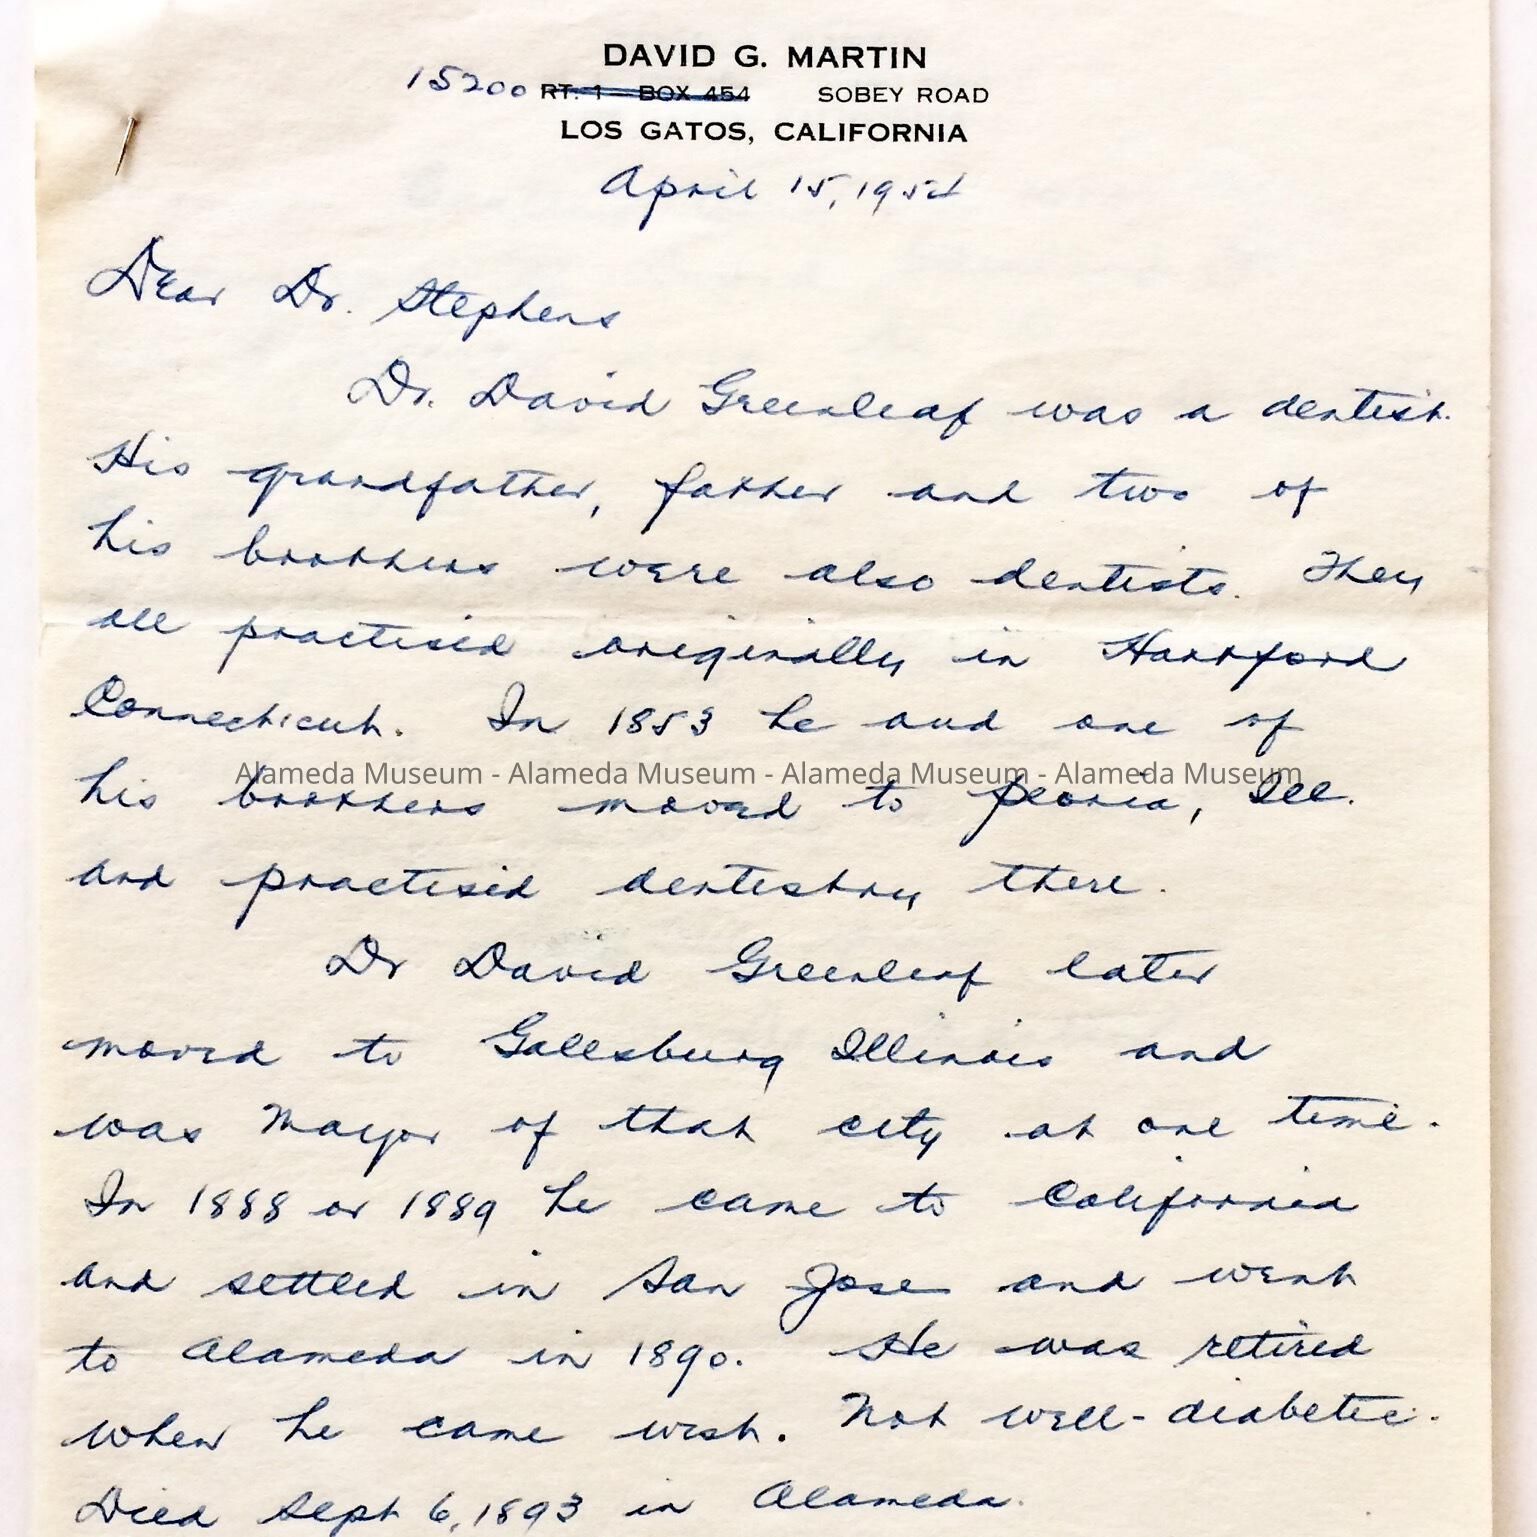 DAVID G. MARTIN
15200 RT. 1 — BOX 454 SOBEY ROAD
LOS GATOS, CALIFORNIA
April 15, 1954
Dear Dr. Stephens
Dr. David Greenleaf was a dentist.
His grandfather, father and two of
his brothers were also dentists. They
all practised originally in Hartford
Connecticut. In 1853 he and one of
Alameda Museum - Alameda Museum - Alameda Museum - Alameda Museum
his brothers moved to Peoria, Ill.
and practised dentistry there.
Dr David Greenleaf later
moved to Galesburg Illinois and
was Mayor of that city at one time.
In 1888 or 1889 he came to California
and settled in San Jose and went
to Alameda in 1890. He was retired
when he came west. Not well-diabetic.
Died Sept 6, 1893 in Alameda.